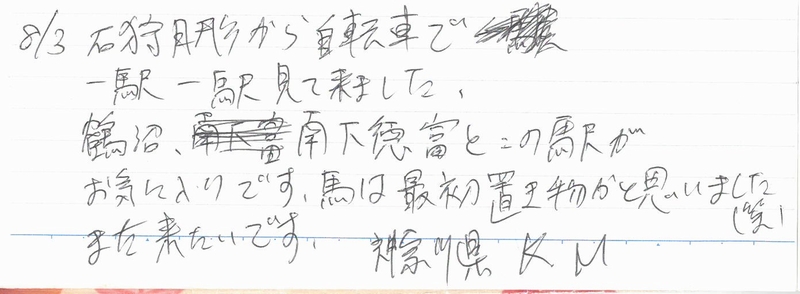 8/3 石狩月形から自転車で
一駅一駅見て来ました、
鶴沼、南下徳富とこの駅が
お気に入りです、馬は最初置き物かと思いました(笑)
また来たいです、 神奈川県 K M